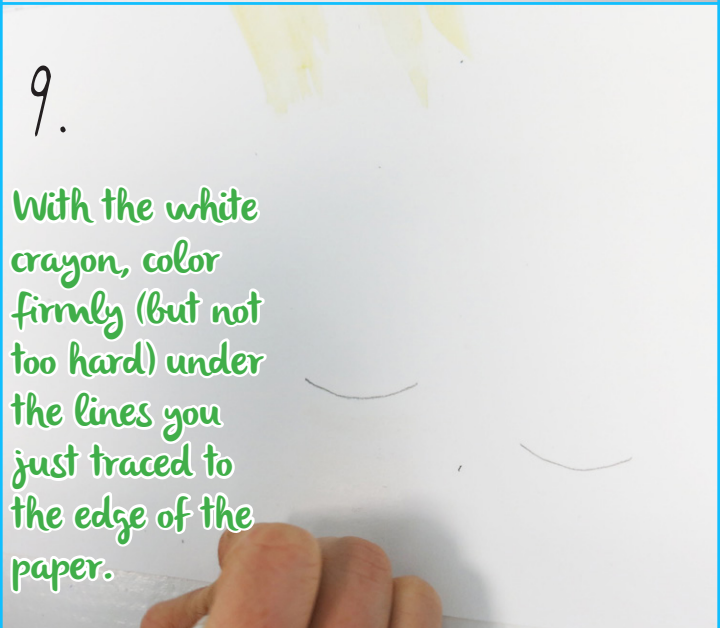 9.
With the white
crayon, color
firmly (but not
too hard) under
the lines you
just traced to
the edge of the
paper.